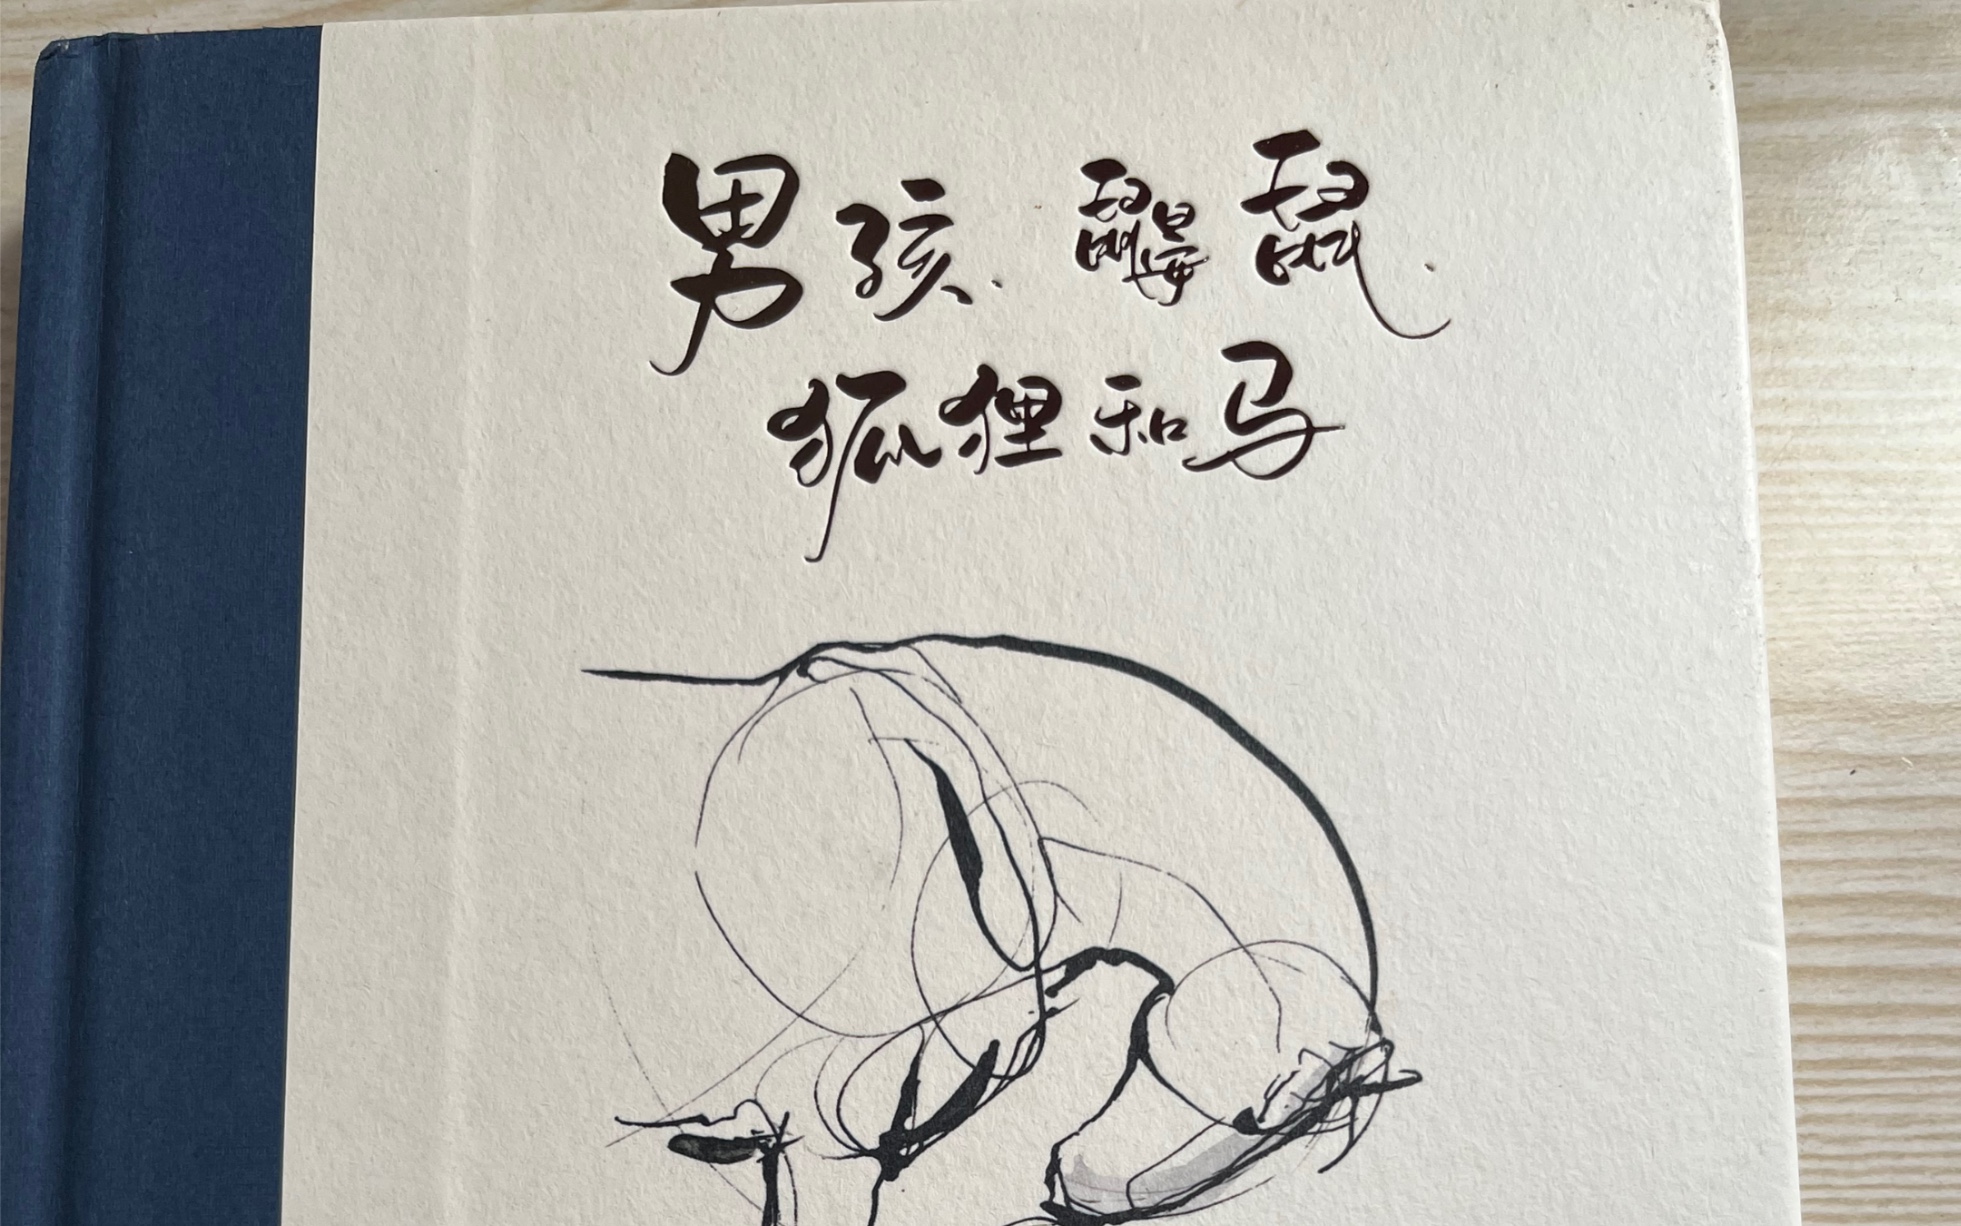 男孩、鼹鼠、
狐狸和马